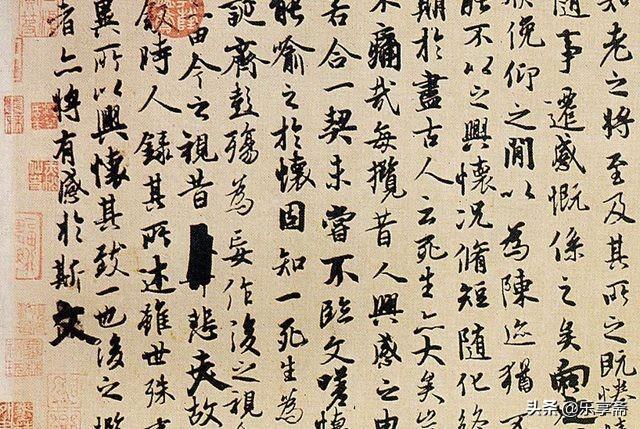 知老之將至及其所之既惓
隨事遷感慨係之矣向之
俛仰之閒以為陳迹猶不
能不以之興懷況脩短隨化終
期於盡古人云死生亦大矣豈
不痛哉每攬昔人興感之由
若合一契未嘗不臨文嗟悼
能喻之於懷固知一死生為
誕齊彭殤為妄作後之視
由今之視昔悲夫故
敘時人錄其所述雖世殊事
異所以興懷其致一也後之攬
者亦將有感於斯文
头条 @乐享斋